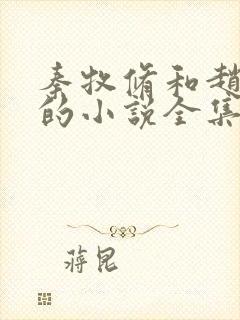 秦牧脩和趙
的小說全集
蔣昆